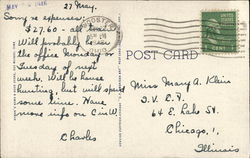 27 May.
Sorry re expenses:
$27.60 - all told.
Will probably be in
the office Monday or
Tuesday of next
week. Will be house
hunting, but will spend
some time. Have
more info on C in W.
Charles
POST CARD
Miss Mary A. Klein
64 E. Lake St.
Chicago, 1,
Illinois